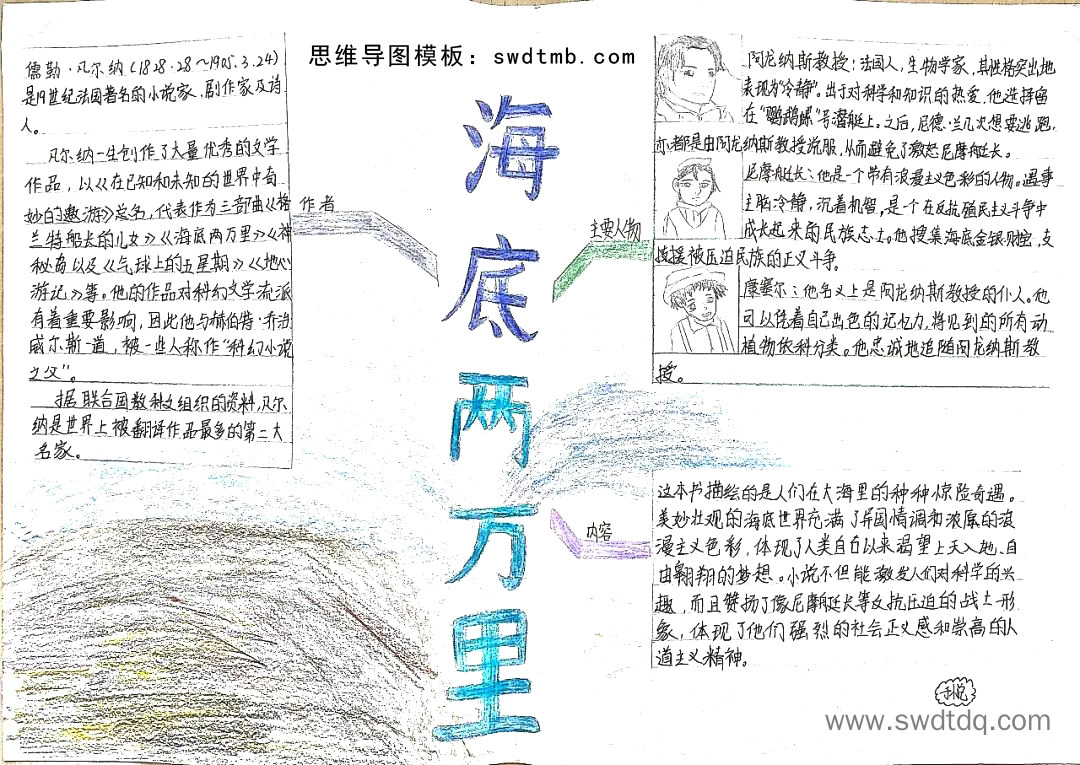 思维导图模板：swdtmb.com
海底两万里
作者
儒勒·凡尔纳(1828·28～1905.3.24)
是19世纪法国著名的小说家、剧作家及诗
人。
凡尔纳一生创作了大量优秀的文学
作品，以《在已知和未知的世界中奇
妙的遨游》总名，代表作为三部曲《格
兰特船长的儿女》《海底两万里》《神
秘岛以及《气球上的五星期》《地心
游记》等。他的作品对科幻文学流派
有着重要影响，因此他与赫伯特·乔治
威尔斯一道，被一些人称作“科幻小说
之父”。
据联合国教科文组织的资料，凡尔
纳是世界上被翻译作品最多的第二大
名家。
主要人物
阿龙纳斯教授：法国人，生物学家，其性格突出地
表现为“冷静”。出于对科学和知识的热爱，他选择留
在“鹦鹉螺”号潜艇上。之后，尼德·兰几次想要逃跑，
亦都是由阿龙纳斯教授说服，从而避免了激怒尼摩艇长。
尼摩艇长：他是一个带有浪漫主义色彩的人物。遇事
主脑冷静，沉着机智，是一个在反抗殖民主义斗争中
成长起来的民族志士。他搜集海底金银财宝，支
援被压迫民族的正义斗争。
康塞尔：他名义上是阿龙纳斯教授的仆人。他
可以凭着自己出色的记忆力，将见到的所有动
植物依科分类。他忠诚地追随阿龙纳斯教
授。
内容
这本书描绘的是人们在大海里的种种惊险奇遇。
美妙壮观的海底世界充满了异国情调和浓厚的浪
漫主义色彩，体现了人类自古以来渴望上天入地、自
由翱翔的梦想。小说不但能激发人们对科学的兴
趣，而且赞扬了像尼摩艇长等反抗压迫的战士形
象，体现了他们强烈的社会正义感和崇高的人
道主义精神。
www.swdtdq.com